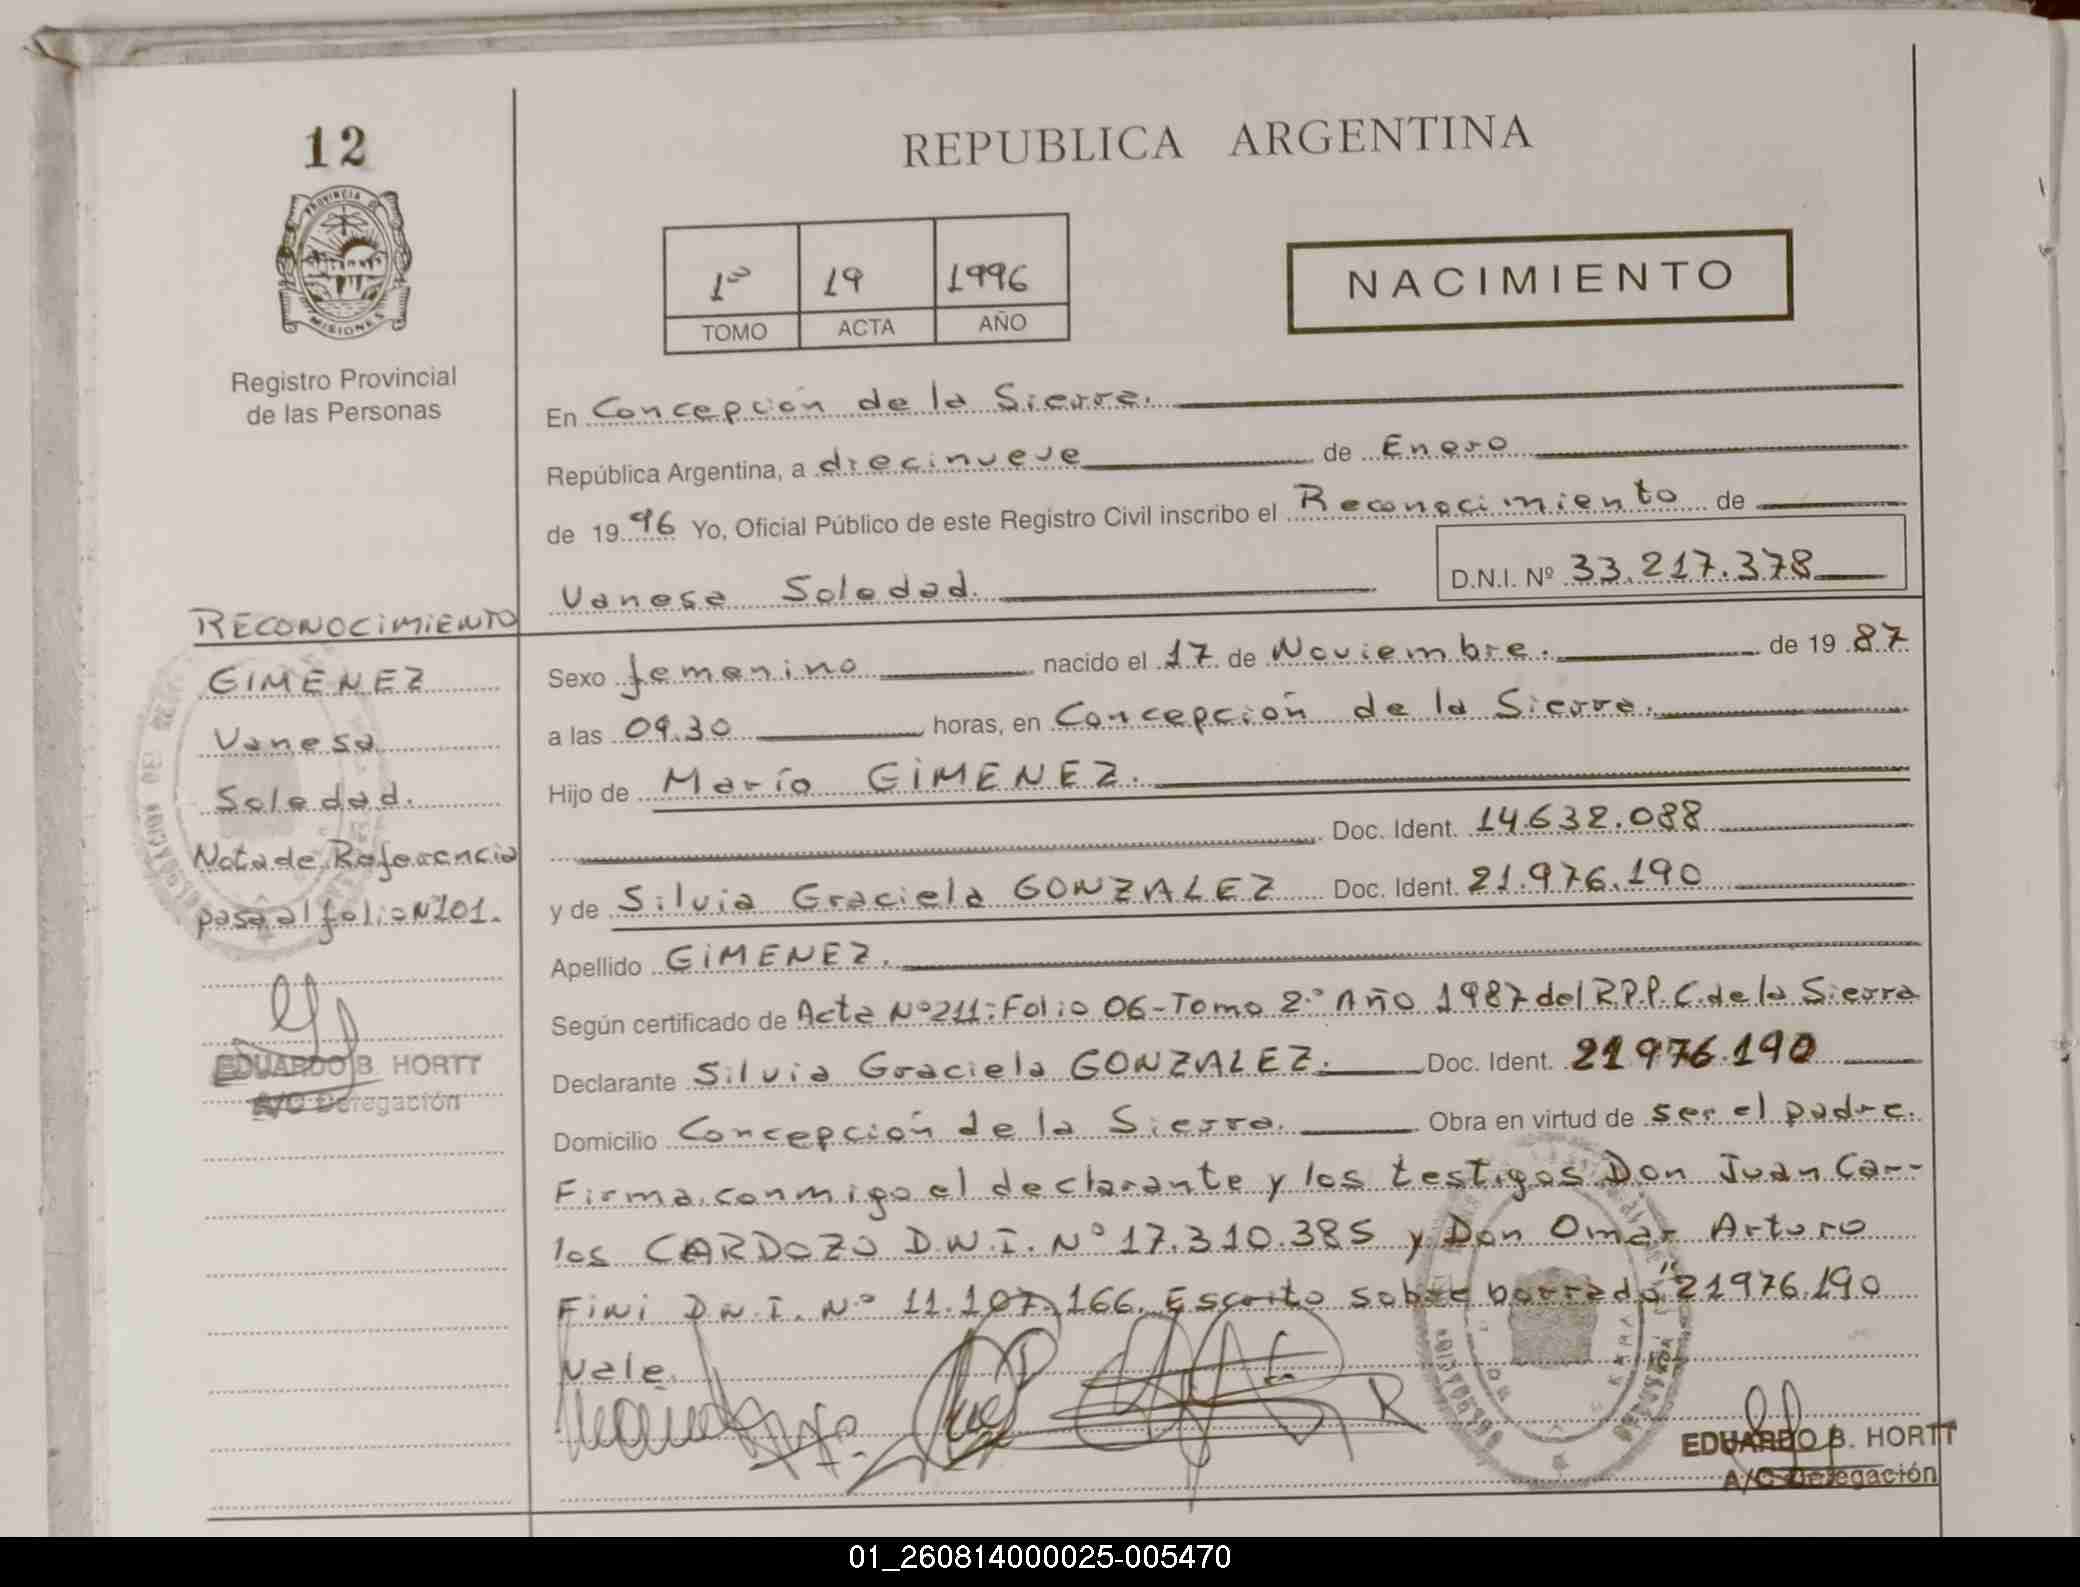 12
PROVINCIA DE
MISIONES
Registro Provincial
de las Personas
REPUBLICA ARGENTINA
1º 19 1996
TOMO ACTA AÑO
NACIMIENTO
En Concepción de la Sierra.
República Argentina, a diecinueve de Enero
de 1996 Yo, Oficial Público de este Registro Civil inscribo el Reconocimiento de
Vanesa Soledad. D.N.I. Nº 33.217.378
RECONOCIMIENTO
GIMENEZ
Vanesa
Soledad.
Nota de Referencia
pasa al folio Nº101.
EDUARDO B. HORTT
A/C Delegación
Sexo femenino nacido el 17 de Noviembre. de 19 87
a las 09.30 horas, en Concepción de la Sierra.
Hijo de Mario GIMENEZ.
Doc. Ident. 14.632.088
y de Silvia Graciela GONZALEZ Doc. Ident. 21.976.190
Apellido GIMENEZ.
Según certificado de Acta Nº211: Folio 06-Tomo 2º Año 1987 del R.P.P. C. de la Sierra
Declarante Silvia Graciela GONZALEZ. Doc. Ident. 21976.190
Domicilio Concepción de la Sierra. Obra en virtud de ser el padre.
Firma conmigo el declarante y los testigos Don Juan Car-
los CARDOZO D.N.I. Nº 17.310.385 y Don Omar Arturo
Fini D.N.I. Nº 11.107.166. Escrito sobre borrado "21976.190
Vale.
EDUARDO B. HORTT
A/C Delegación
01_260814000025-005470